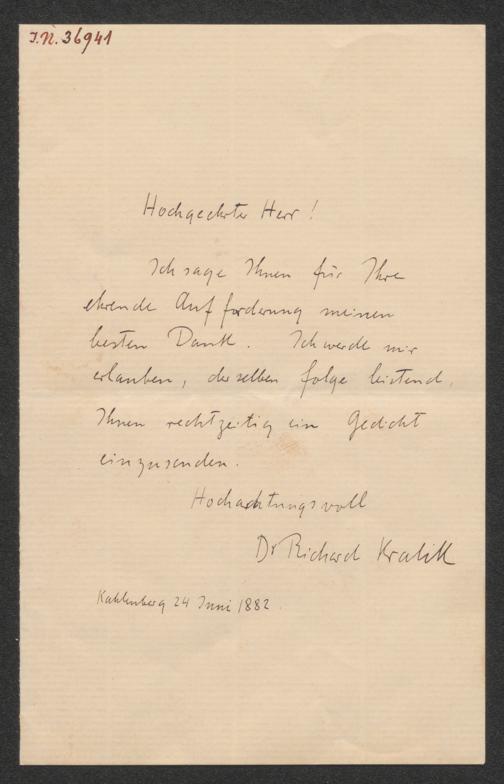 I.N. 36941
Hochgeehrter Herr!
Ich sage Ihnen für Ihre
ehrende Aufforderung meinen
besten Dank. Ich werde mir
erlauben, derselben folge leistend,
Ihnen rechtzeitig ein Gedicht
einzusenden.
Hochachtungsvoll
Dr Richard Kralik
Kahlenberg 24 Juni 1882.